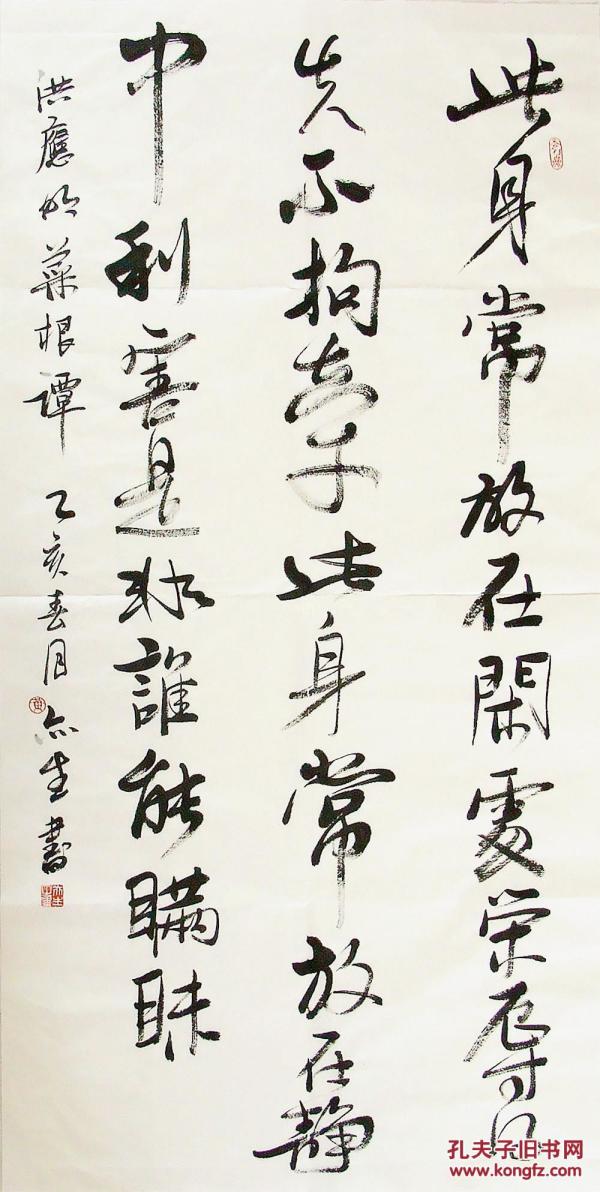 此身常放在閑處榮辱得
失不拘牽此身常放在靜
中利害是非誰能瞞昧
洪應明菜根譚 乙亥春月 亦生書
孔夫子旧书网
www.kongfz.com